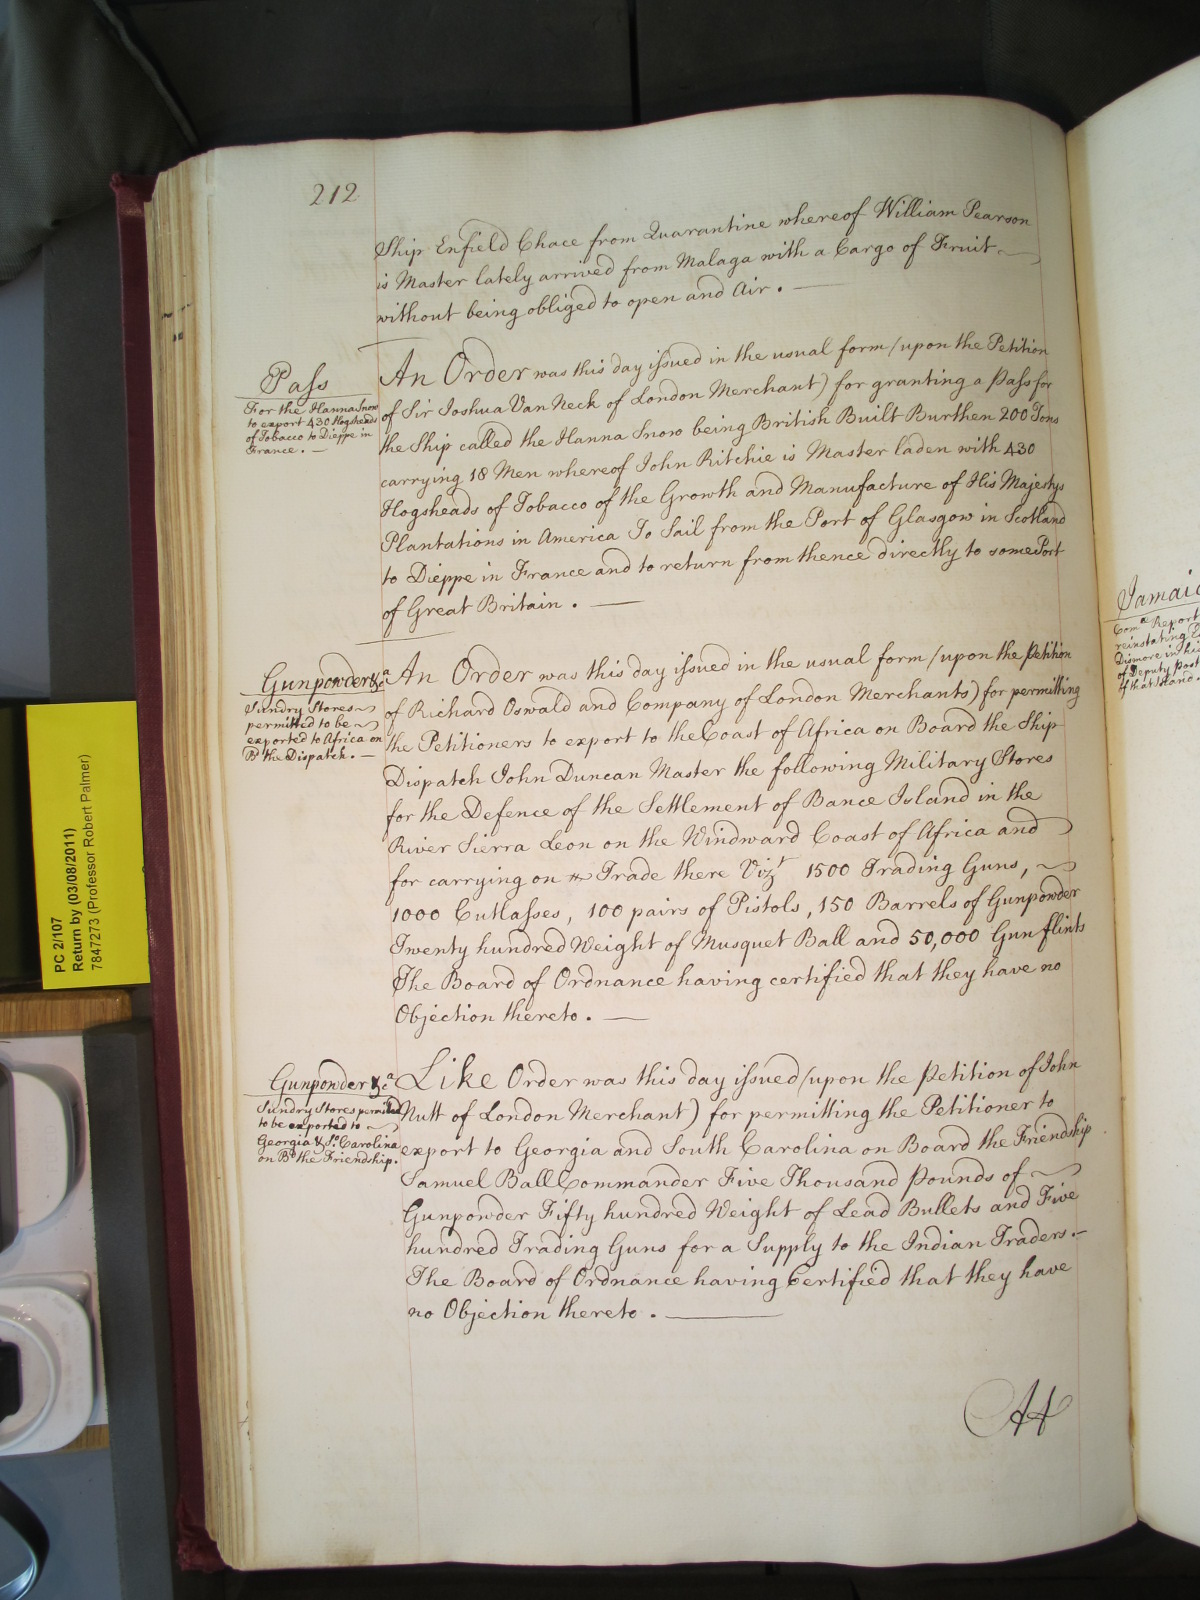 212
Ship Enfield Chace from Quarantine whereof William Pearson
is Master lately arrived from Malaga with a Cargo of Fruit
without being obliged to open and Air.
Pass
For the Hanna Snow
to export 430 Hogsheads
of Tobacco to Dieppe in
France.
An Order was this day issued in the usual form (upon the Petition
of Sir Joshua Van Neck of London Merchant) for granting a Pass for
the Ship called the Hanna Snow being British Built Burthen 200 Tons
carrying 18 Men whereof John Ritchie is Master laden with 430
Hogsheads of Tobacco of the Growth and Manufacture of His Majestys
Plantations in America To Sail from the Port of Glasgow in Scotland
to Dieppe in France and to return from thence directly to some Port
of Great Britain.
Gunpowder &ca
Sundry Stores
permitted to be
exported to Africa on
Bd the Dispatch.
An Order was this day issued in the usual form (upon the Petition
of Richard Oswald and Company of London Merchants) for permitting
the Petitioners to export to the Coast of Africa on Board the Ship
Dispatch John Duncan Master the following Military Stores
for the Defence of the Settlement of Bance Island in the
River Sierra Leon on the Windward Coast of Africa and
for carrying on Trade there Vizt 1500 Trading Guns,
1000 Cutlasses, 100 pairs of Pistols, 150 Barrels of Gunpowder
Twenty hundred Weight of Musquet Ball and 50,000 Gun flints
The Board of Ordnance having certified that they have no
Objection thereto.
Gunpowder &ca
Sundry Stores permitted
to be exported to
Georgia & So. Carolina
on Bd the Friendship.
Like Order was this day issued (upon the Petition of John
Nutt of London Merchant) for permitting the Petitioner to
export to Georgia and South Carolina on Board the Friendship
Samuel Ball Commander Five Thousand Pounds of
Gunpowder Fifty hundred Weight of Lead Bullets and Five
hundred Trading Guns for a Supply to the Indian Traders.
The Board of Ordnance having Certified that they have
no Objection thereto.
At
Jamaic
Comee Report
reinstating
Dismore in his
of Deputy Post
of that Island.
PC 2/107
Return by (03/08/2011)
7847273 (Professor Robert Palmer)